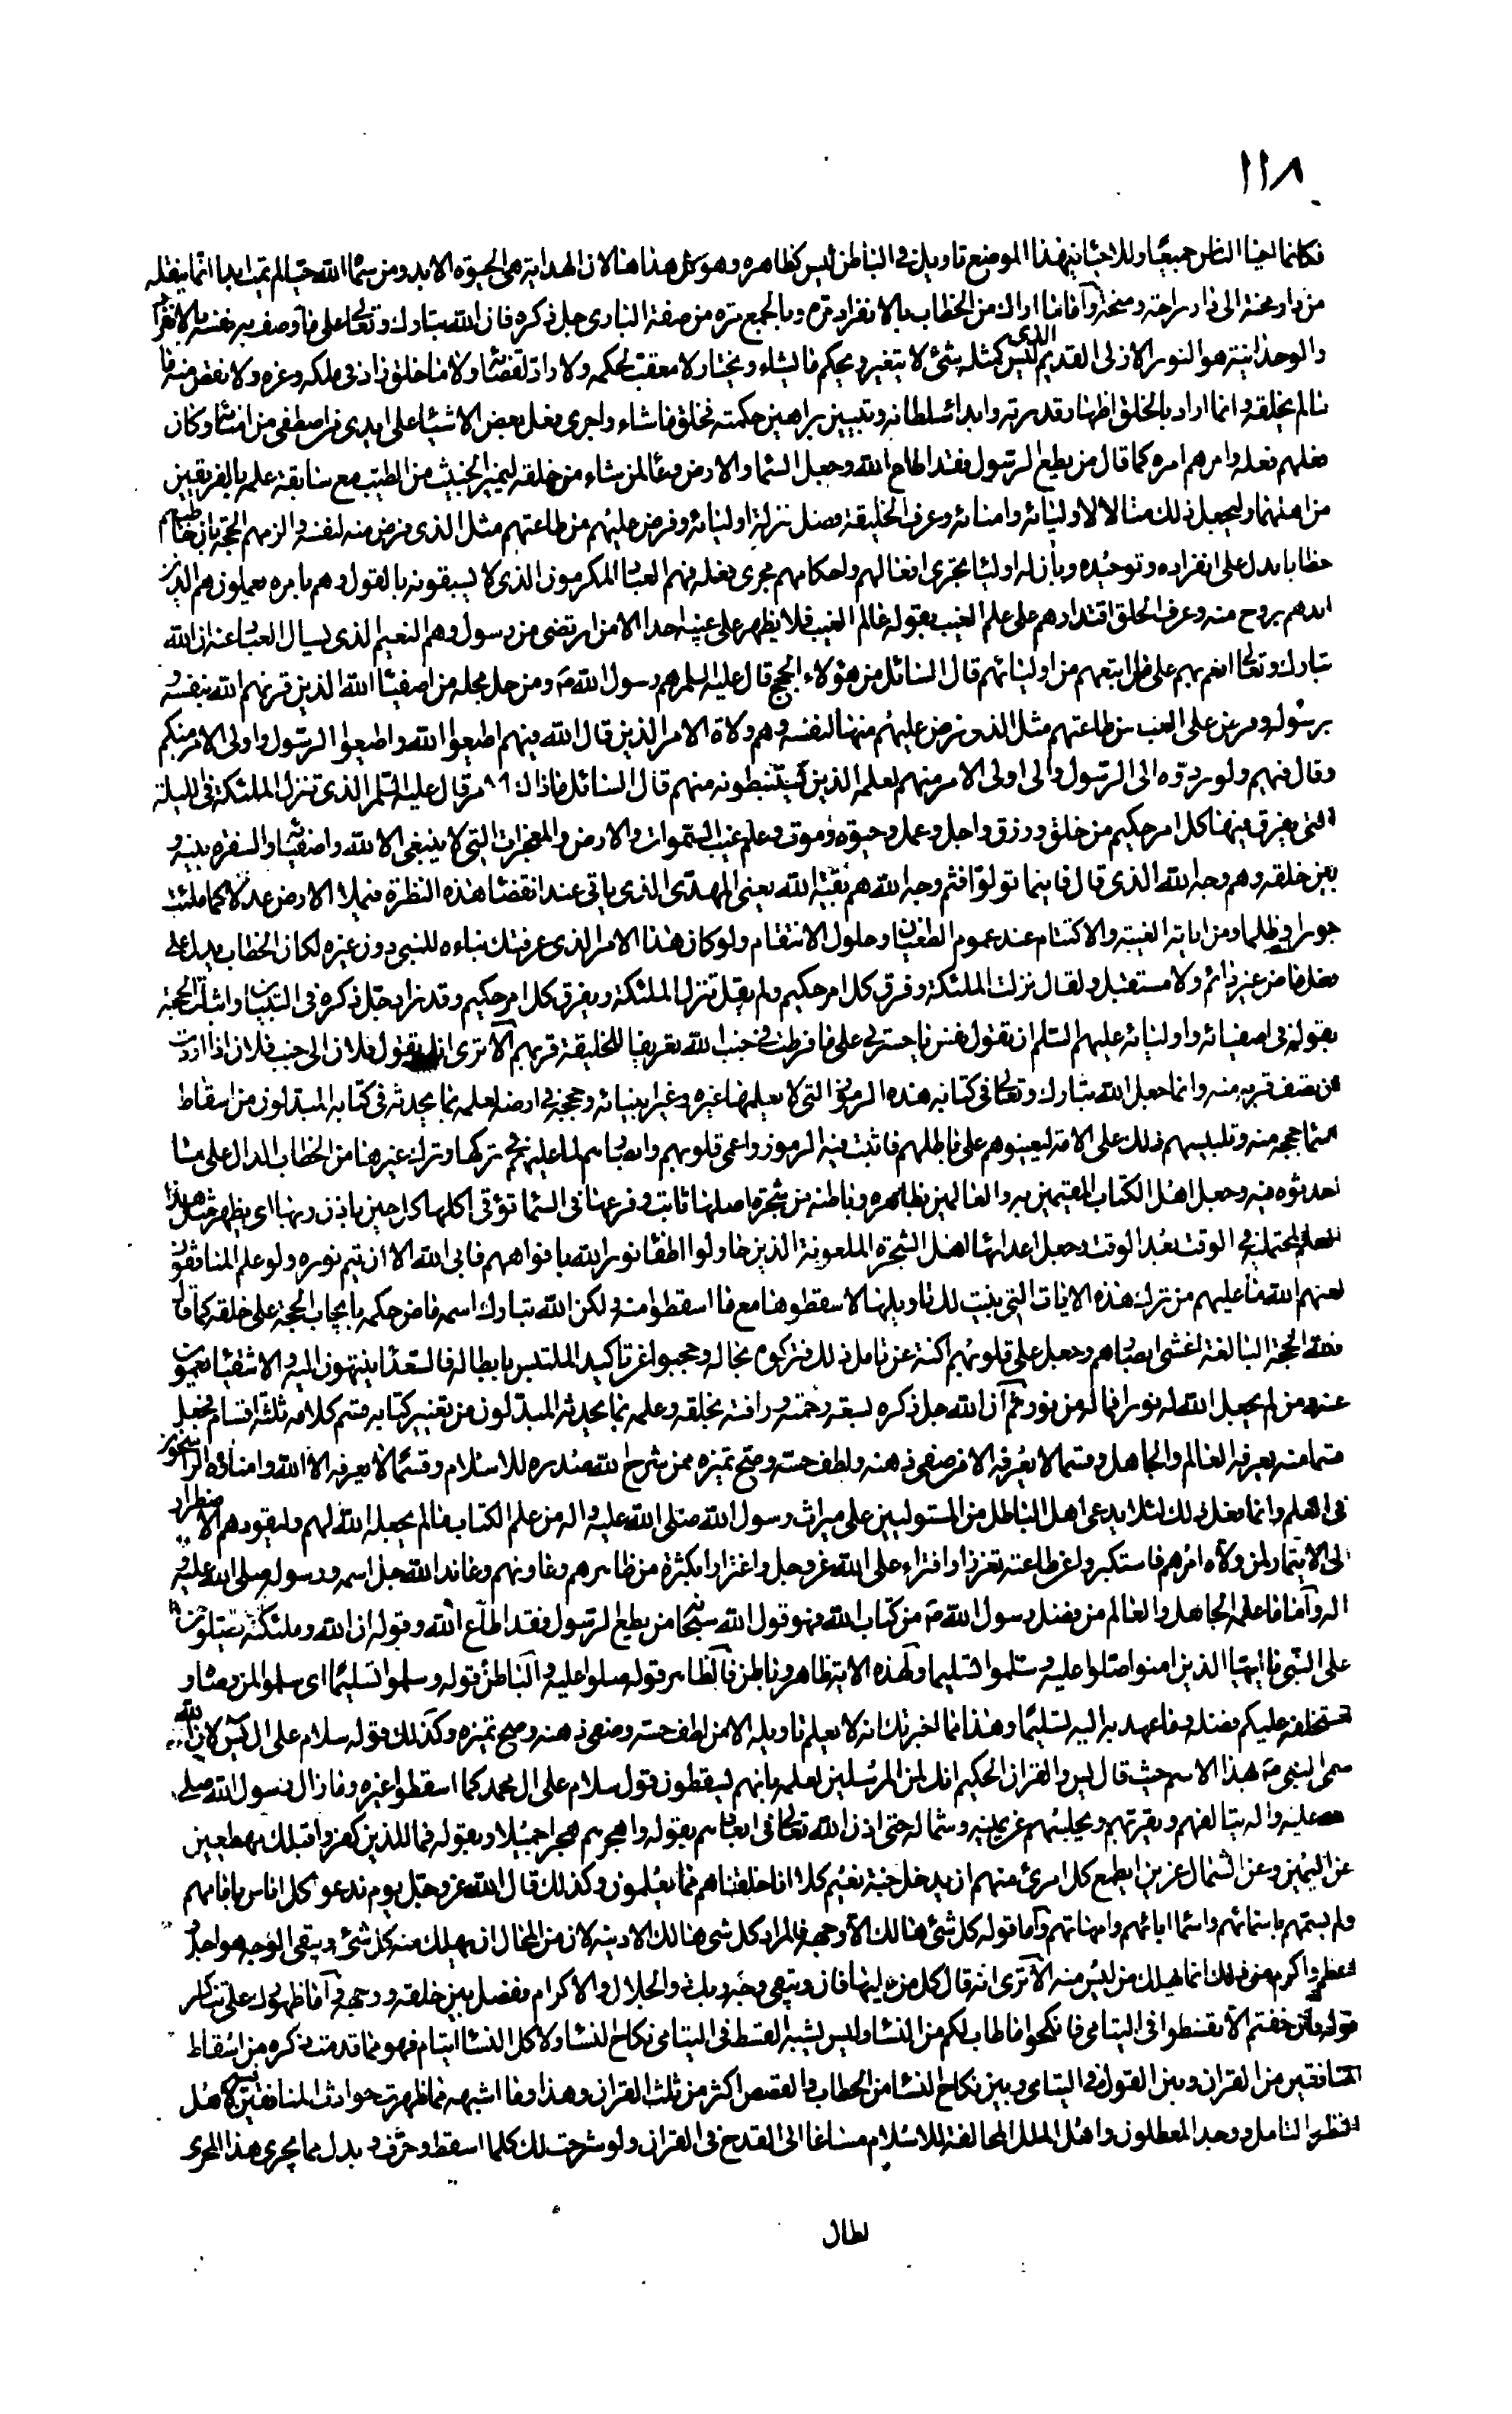 ١١٨
فكانما احيا الناس جميعا وللاحياء فى هذا الموضع تاويل فى الباطن ليس كظاهره وهو من هداها لان الهداية هى الحيوة الابد ومن سماه الله حيا لم يمت ابدا انما ينقله
من دار محنة الى دار راحة ومنحة واما ما اراك من الخطاب بالانفراد مرة وبالجمع مرة من صفة البارى جل ذكره فان الله تبارك وتعالى على ما وصف به نفسه بالانفراد
والوحدانية هو النور الازلى القديم الذى ليس كمثله شئ لا يتغير ويحكم ما يشاء ويختار ولا معقب لحكمه ولا راد لقضائه ولا ما خلق زاد فى ملكه وعزه ولا نقص منه ما
ما لم يخلقه وانما اراد بالخلق اظهار قدرته وابداء سلطانه وتبيين براهين حكمته فخلق ما شاء كما شاء واجرى فعل بعض الاشياء على ايدى من اصطفى من امنائه وكان
فعلهم فعله وامرهم امره كما قال من يطع الرسول فقد اطاع الله وجعل السماء والارض وعاء لمن يشاء من خلقه ليميز الخبيث من الطيب مع سابق علمه بالفريقين
من اهلهما وليجعل ذلك مثالا لاوليائه وامنائه وعرف الخليقة فضل منزلة اوليائه وفرض عليهم من طاعتهم مثل الذى فرضه منه لنفسه والزمهم الحجة بان خاطبهم
خطابا يدل على انفراده وتوحيده وبان له اولياء تجرى افعالهم واحكامهم مجرى فعله فهم العباد المكرمون الذى لا يسبقونه بالقول وهم بامره يعملون هم الذين
ايدهم بروح منه وعرف الخلق اقتدارهم على علم الغيب بقوله عالم الغيب فلا يظهر على غيبه احدا الا من ارتضى من رسول وهم النعيم الذى يسال العباد عنه ان الله
تبارك وتعالى انعم بهم على من اتبعهم من اوليائهم قال السائل من هؤلاء الحجج قال عليه السلم هم رسول الله ص ومن حل محله من اصفياء الله الذين قرنهم الله بنفسه و
برسوله وفرض على العباد من طاعتهم مثل الذى فرض عليهم منها لنفسه وهم ولاة الامر الذين قال الله فيهم اطيعوا الله واطيعوا الرسول واولى الامر منكم
وقال فيهم ولو ردوه الى الرسول والى اولى الامر منهم لعلمه الذين يستنبطونه منهم قال السائل ما ذاك الامر قال عليه السلم الذى تنزل الملئكة فى الليلة
التى يفرق فيها كل امر حكيم من خلق ورزق واجل وعمل وحيوة وموت وعلم غيب السموات والارض والمعجزات التى لا ينبغى الا لله واصفيائه والسفرة بينه و
بين خلقه وهم وجه الله الذى قال فاينما تولوا فثم وجه الله هم بقية الله يعنى المهدى الذى ياتى عند انقضاء هذه النظرة فيملا الارض عدلا كما ملئت
جورا وظلما ومن اياته الغيبة والاكتتام عند عموم الطغيان وحلول الانتقام ولو كان هذا الامر الذى عرفتك نباءه للنبى دون غيره لكان الخطاب يدل على
فعل ماض غير دائم ولا مستقبل ولقال نزلت الملئكة وفرق كل امر حكيم ولم يقل تنزل الملئكة ويفرق كل امر حكيم وقد زاد جل ذكره فى التبيان واثبات الحجة
بقوله فى اصفيائه واوليائه عليهم السلم ان تقول نفس يا حسرتى على ما فرطت فى جنب الله تعريفا للخليقة قربهم الا ترى انك تقول فلان الى جنب فلان اذا اردت
ان تصف قربه منه وانما جعل الله تبارك وتعالى فى كتابه هذه الرموز التى لا يعلمها غيره وغير انبيائه وحججه فى ارضه لعلمه بما يحدثه فى كتابه المبدلون من اسقاط
اسماء حججه منه وتلبيسهم ذلك على الامة ليعينوهم على باطلهم فاثبت فيه الرموز واعمى قلوبهم وابصارهم لما عليهم فى تركها وترك غيرها من الخطاب الدال على ما
احدثوه فيه وجعل اهل الكتاب المقيمين به والعالمين بظاهره وباطنه من شجرة اصلها ثابت وفرعها فى السماء تؤتى اكلها كل حين باذن ربها اى يظهر مثل هذا
العلم لمحتمليه فى الوقت بعد الوقت وجعل اعدائها اهل الشجرة الملعونة الذين حاولوا اطفاء نور الله بافواههم فابى الله الا ان يتم نوره ولو علم المنافقون
لعنهم الله ما عليهم من ترك هذه الايات التى بينت لك تاويلها لاسقطوها مع ما اسقطوا منه ولكن الله تبارك اسمه ماض حكمه بايجاب الحجة على خلقه كما قال
فلله الحجة البالغة اغشى ابصارهم وجعل على قلوبهم اكنة عن تامل ذلك فتركوه بحاله وحجبوا عن تاكيد الملتبس بابطاله فالسعداء ينتهون اليه والاشقياء يعمون
عنه ومن لم يجعل الله له نورا فما له من نور ثم ان الله جل ذكره لسعة رحمته ورافته بخلقه وعلمه بما يحدثه المبدلون من تغيير كتابه قسم كلامه ثلثة اقسام فجعل
قسما منه يعرفه العالم والجاهل وقسما لا يعرفه الا من صفى ذهنه ولطف حسه وصح تميزه ممن شرح الله صدره للاسلام وقسما لا يعرفه الا الله وامناؤه الراسخون
فى العلم وانما فعل ذلك لئلا يدعى اهل الباطل من المستولين على ميراث رسول الله صلى الله عليه واله من علم الكتاب ما لم يجعله الله لهم وليقودهم الاضطرار
الى الايتمار لمن ولاه امرهم فاستكبروا عن طاعته تعززا وافتراء على الله عز وجل واغترارا بكثرة من ظاهرهم وعاونهم وعاند الله جل اسمه ورسوله صلى الله عليه و
اله واما ما علمه الجاهل والعالم من فضل رسول الله ص من كتاب الله فهو قول الله سبحانه من يطع الرسول فقد اطاع الله وقوله ان الله وملئكته يصلون
على النبى يا ايها الذين امنوا صلوا عليه وسلموا تسليما ولهذه الاية ظاهر وباطن فالظاهر قوله صلوا عليه والباطن قوله وسلموا تسليما اى سلموا لمن وصاه و
استخلفه عليكم فضله وما عهد به اليه تسليما وهذا مما اخبرتك انه لا يعلم تاويله الا من لطف حسه وصفى ذهنه وصح تميزه وكذلك قوله سلام على ال يس لان الله
سمى النبى ص بهذا الاسم حيث قال يس والقران الحكيم انك لمن المرسلين لعلمه بانهم يسقطون قول سلام على ال محمد كما اسقطوا غيره وما زال رسول الله صلى
الله عليه واله يتالفهم ويقربهم ويجلسهم عن يمينه وشماله حتى اذن الله تعالى فى ابعادهم بقوله واهجرهم هجرا جميلا وبقوله فمال الذين كفروا قبلك مهطعين
عن اليمين وعن الشمال عزين ايطمع كل امرئ منهم ان يدخل جنة نعيم كلا انا خلقناهم مما يعلمون وكذلك قال الله عز وجل يوم ندعو كل اناس بامامهم
ولم يسمهم باسمائهم واسماء ابائهم وامهاتهم واما قوله كل شئ هالك الا وجهه فالمراد كل شئ هالك الا دينه لان من المحال ان يهلك منه كل شئ ويبقى الوجه هو اجل
اعظم واكرم من ذلك انما يهلك من ليس منه الا ترى انه قال كل من عليها فان ويبقى وجه ربك ذو الجلال والاكرام ففصل بين خلقه ووجهه واما ظهورك على تناكر
قوله فان خفتم الا تقسطوا فى اليتامى فانكحوا ما طاب لكم من النساء وليس يشبه القسط فى اليتامى نكاح النساء ولا كل النساء ايتام فهو مما قدمت ذكره من اسقاط
المنافقين من القران وبين القول فى اليتامى وبين نكاح النساء من الخطاب والقصص اكثر من ثلث القران وهذا وما اشبهه مما ظهرت حوادث المنافقين فيه لاهل
النظر والتامل ووجد المعطلون واهل الملل المخالفة للاسلام مساغا الى القدح فى القران ولو شرحت لك كلما اسقط وحرف وبدل مما يجرى هذا المجرى
لطال